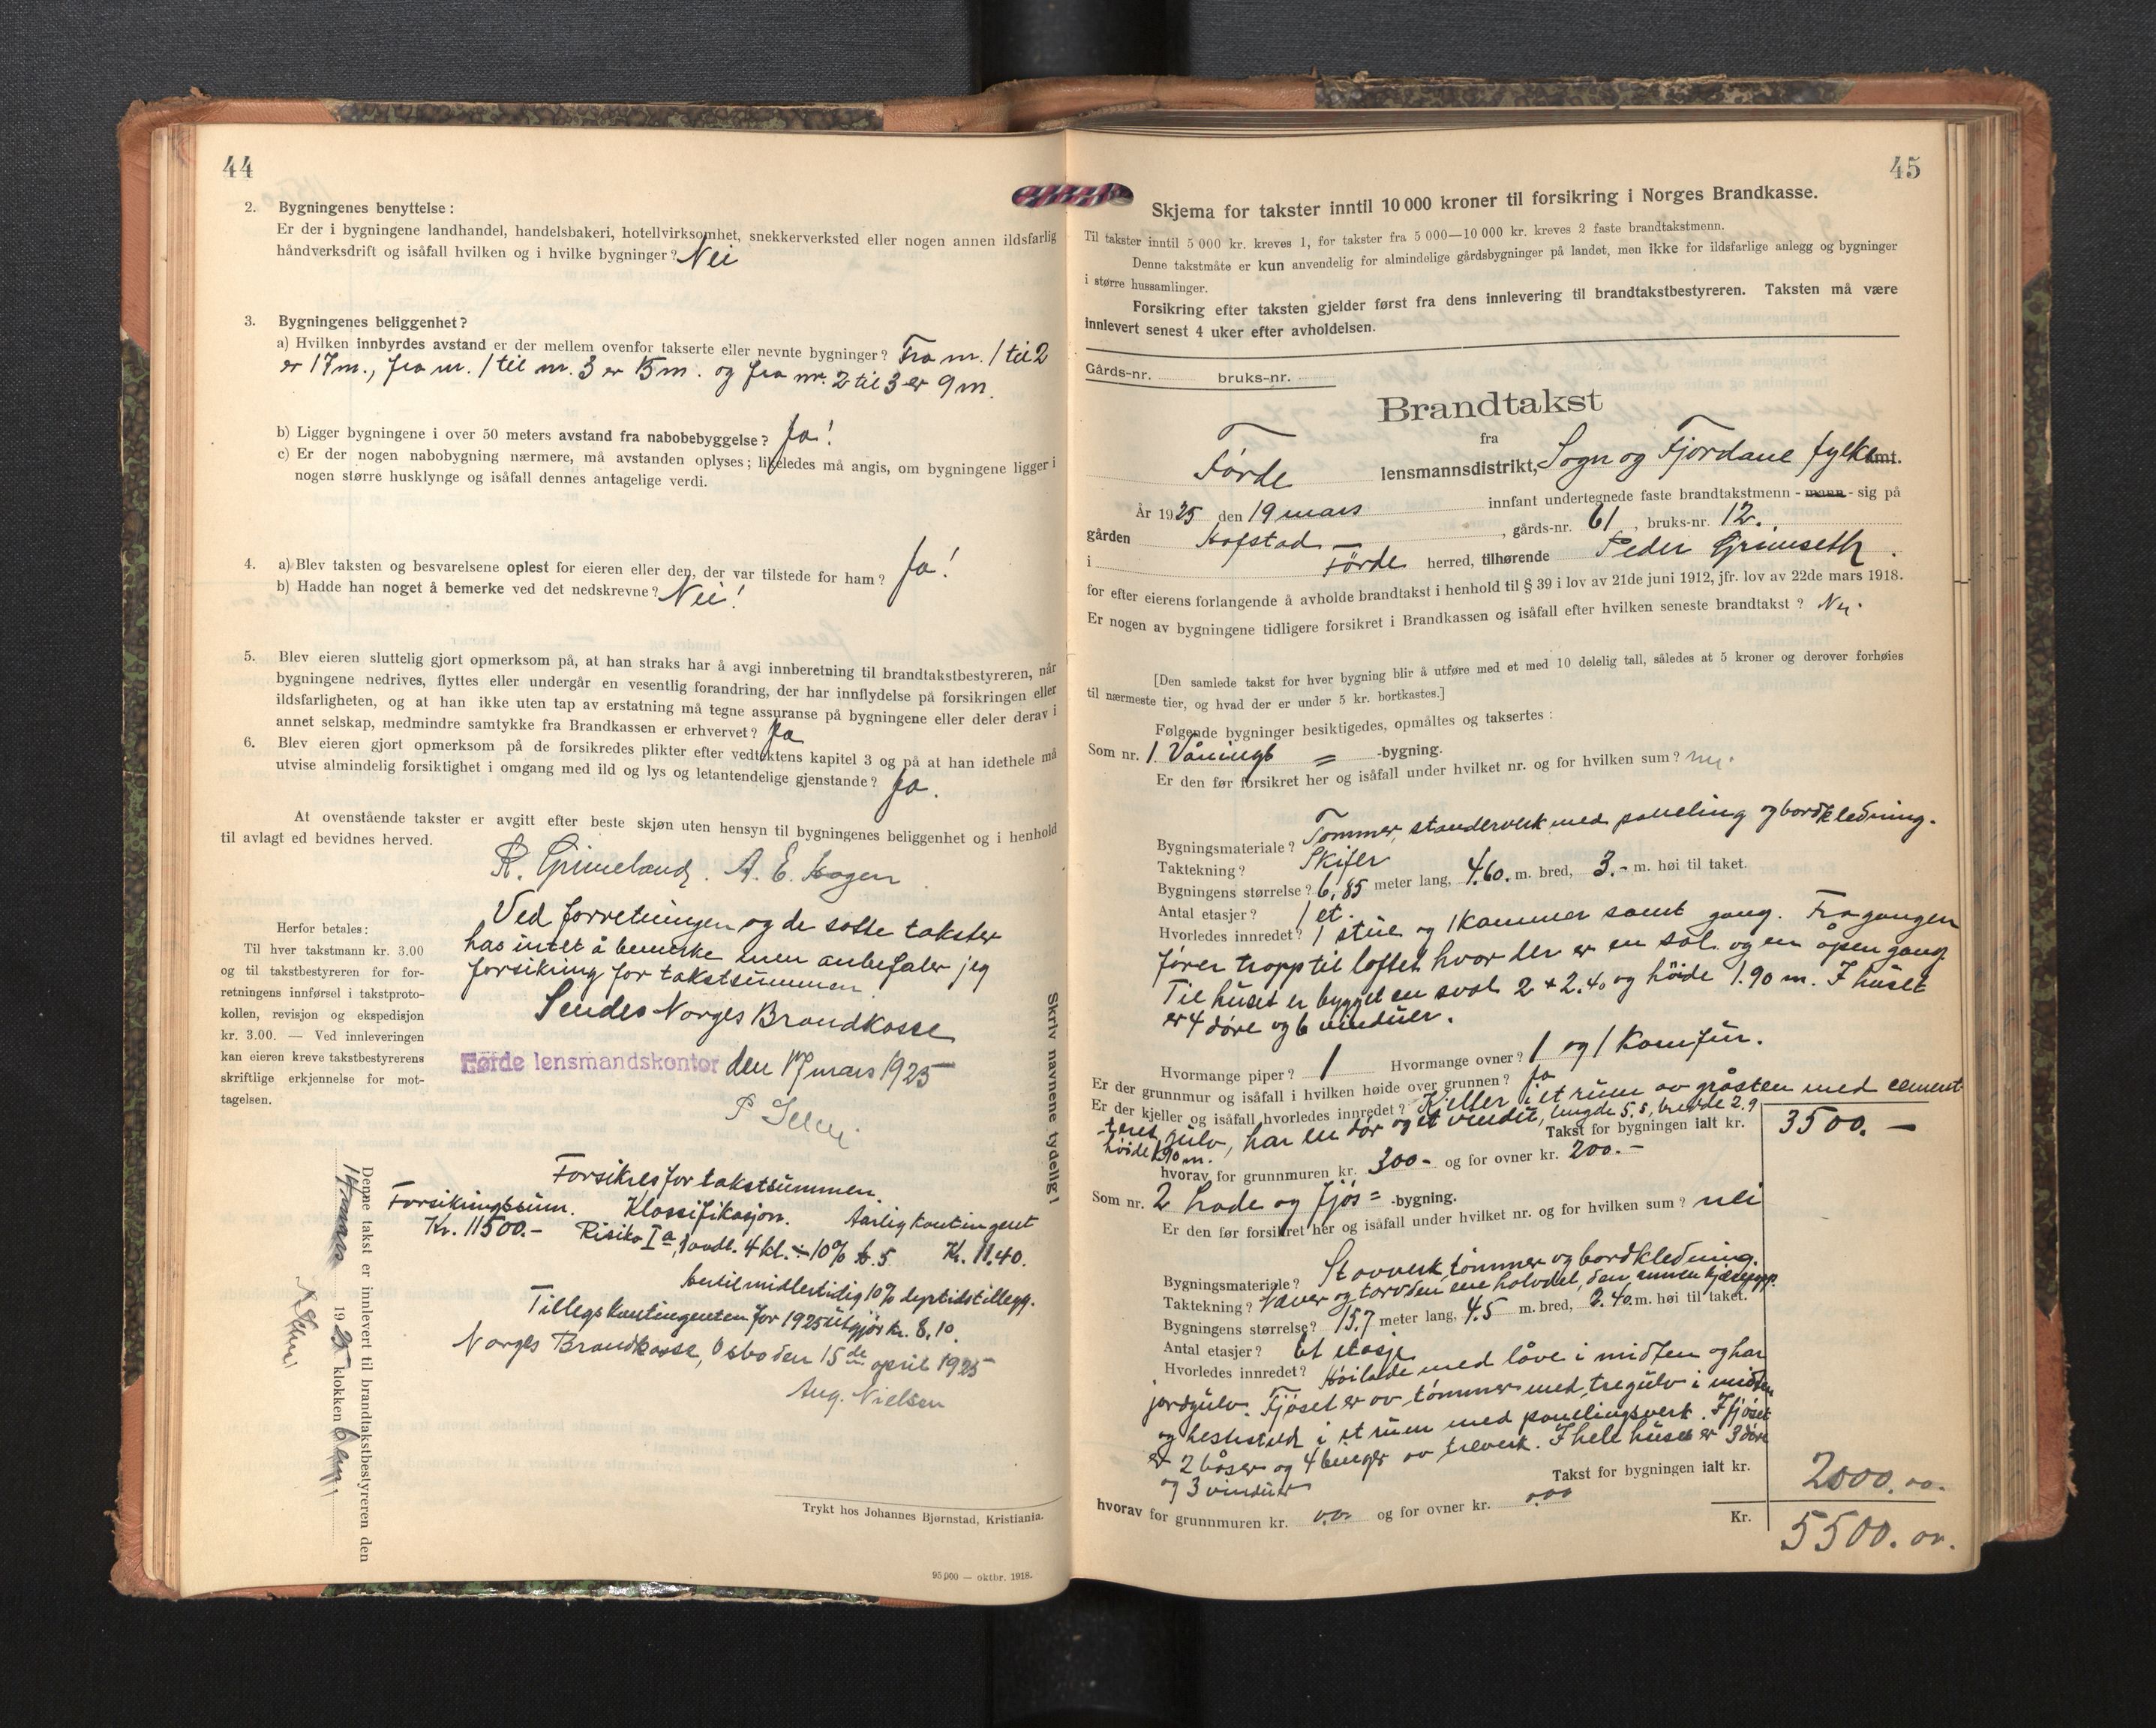 44
2. Bygningenes benyttelse :
Er der i bygningene landhandel, handelsbakeri, hotellvirksomhet, snekkerverksted eller nogen annen ildsfarlig
håndverksdrift og isåfall hvilken og i hvilke bygninger? Nei
3. Bygningenes beliggenhet?
a) Hvilken innbyrdes avstand er der mellem ovenfor takserte eller nevnte bygninger? Fra nr. 1 til 2
er 17 m., fra nr. 1 til nr. 3 er 15 m. og fra nr. 2 til 3 er 9 m.
b) Ligger bygningene i over 50 meters avstand fra nabobebyggelse? Ja!
c) Er der nogen nabobygning nærmere, må avstanden oplyses; likeledes må angis, om bygningene ligger i
nogen større husklynge og isåfall dennes antagelige verdi.
4. a) Blev taksten og besvarelsene oplest for eieren eller den, der var tilstede for ham? Ja!
b) Hadde han noget å bemerke ved det nedskrevne? Nei!
5. Blev eieren sluttelig gjort opmerksom på, at han straks har å avgi innberetning til brandtakstbestyreren, når
bygningene nedrives, flyttes eller undergår en vesentlig forandring, der har innflydelse på forsikringen eller
ildsfarligheten, og at han ikke uten tap av erstatning må tegne assuranse på bygningene eller deler derav i
annet selskap, medmindre samtykke fra Brandkassen er erhvervet? Ja
6. Blev eieren gjort opmerksom på de forsikredes plikter efter vedtektens kapitel 3 og på at han idethele må
utvise almindelig forsiktighet i omgang med ild og lys og letantendelige gjenstande? Ja.
At ovenstående takster er avgitt efter beste skjøn uten hensyn til bygningenes beliggenhet og i henhold
til avlagt ed bevidnes herved.
R. Grimeland. A. E. Hagen
Ved forretningen og de satte takster
has intet å bemerke men anbefaler jeg
forsikring for takstsummen.
Sendes Norges Brandkasse
Førde lensmandskontor den 17 mars 1925
Herfor betales:
Til hver takstmann kr. 3.00
og til takstbestyreren for for-
retningens innførsel i takstproto-
kollen, revisjon og ekspedisjon
kr. 3.00. — Ved innleveringen
kan eieren kreve takstbestyrerens
skriftlige erkjennelse for mot-
tagelsen.
Skriv navnene tydelig!
Denne takst er innlevert til brandtakstbestyreren den
mars 1925 klokken 6
Forsikres for takstsummen.
Forsikringssum. Klassifikasjon. Aarlig kontingent
Kr. 11500.- Risiko Ia, landl. 4 kl. ÷ 10% Kr. 11.40.
midlertidig 10% dyrtidstillegg.
Tillegskontingenten for 1925 utgjør kr. 8.10.
Norges Brandkasse, Oslo den 15de april 1925
Aug. Nielsen
Trykt hos Johannes Bjørnstad, Kristiania.
95000 — oktbr. 1918.
45
Skjema for takster inntil 10 000 kroner til forsikring i Norges Brandkasse.
Til takster inntil 5 000 kr. kreves 1, for takster fra 5 000—10 000 kr. kreves 2 faste brandtakstmenn.
Denne takstmåte er kun anvendelig for almindelige gårdsbygninger på landet, men ikke for ildsfarlige anlegg og bygninger
i større hussamlinger.
Forsikring efter taksten gjelder først fra dens innlevering til brandtakstbestyreren. Taksten må være
innlevert senest 4 uker efter avholdelsen.
Gårds-nr. bruks-nr.
Brandtakst
fra
Førde lensmannsdistrikt, Sogn og Fjordane fylke amt.
År 1925 den 19 mars innfant undertegnede faste brandtakstmenn - mann - sig på
gården Hafstad , gårds-nr. 61, bruks-nr. 12.
i Førde herred, tilhørende Peder Grimseth.
for efter eierens forlangende å avholde brandtakst i henhold til § 39 i lov av 21de juni 1912, jfr. lov av 22de mars 1918.
Er nogen av bygningene tidligere forsikret i Brandkassen og isåfall efter hvilken seneste brandtakst? Nei.
[Den samlede takst for hver bygning blir å utføre med et med 10 delelig tall, således at 5 kroner og derover forhøies
til nærmeste tier, og hvad der er under 5 kr. bortkastes.]
Følgende bygninger besiktigedes, opmåltes og taksertes :
Som nr. 1. Vånings = -bygning.
Er den før forsikret her og isåfall under hvilket nr. og for hvilken sum? nei.
Bygningsmateriale? Tømmer, standerverk med paneling og bordkledning.
Taktekning? Skifer
Bygningens størrelse? 6,85 meter lang, 4.60. m. bred, 3.- m. høi til taket.
Antal etasjer? 1 et.
Hvorledes innredet? 1 stue og 1 kammer samt gang. Fra gangen
fører trapp til loftet hvor der er en sal og en åpen gang.
Til huset er bygget en sval 2 + 2.40 og høide 1.90 m. I huset
er 4 døre og 6 vinduer.
Hvormange piper? 1 Hvormange ovner? 1 og 1 Komfur.
Er der grunnmur og isåfall i hvilken høide over grunnen? ja
Er der kjeller og isåfall hvorledes innredet? Kjeller i et rum av gråsten med cement
teret gulv, har en dør og et vindu, lengde 5.5, bredde 2.9
høide 1.90 m. Takst for bygningen ialt kr. 3500.—
hvorav for grunnmuren kr. 300- og for ovner kr. 200.—
Som nr. 2 Lade og fjøs = -bygning.
Er den før forsikret her og isåfall under hvilket nr. og for hvilken sum? nei
Bygningsmateriale? Stavverk, tømmer og bordkledning.
Taktekning? Never og torv den ene halvdel, den annen
Bygningens størrelse? 15.7 meter lang, 4.5 m. bred, 2.40 m. høi til taket.
Antal etasjer? Et etasje
Hvorledes innredet? Høilade med låve i midten og har
jordgulv. Fjøset er av tømmer med tregulv i midten
og hestestald i et rum med panelingsverk. I fjøset
er 2 båser og 4 binger av treverk. I hele huset er 3 døre
og 3 vinduer
Takst for bygningen ialt kr. 2000.00.
hvorav for grunnmuren kr. 0.0 og for ovner kr. 0.00
Kr. 5500.00.